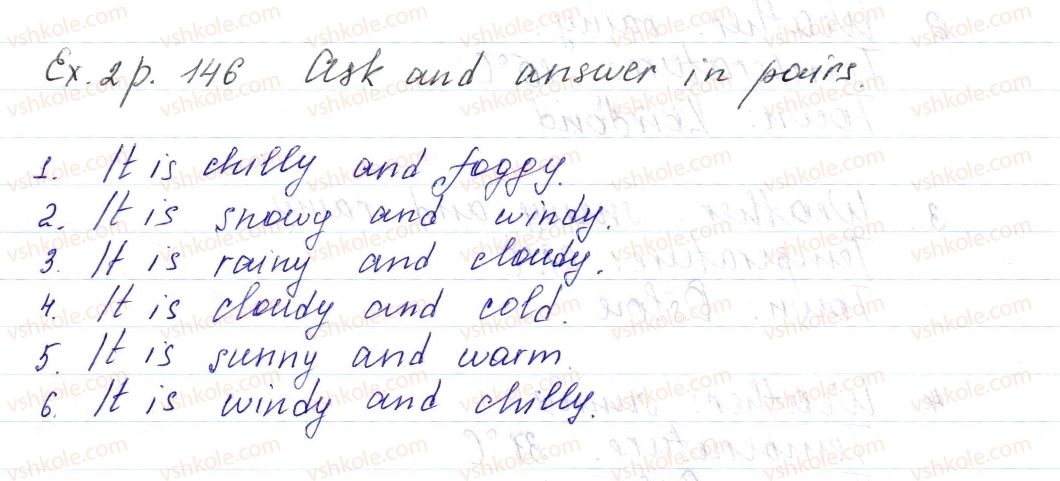 Ex. 2 p. 146 Ask and answer in pairs.
1. It is chilly and foggy.
2. It is snowy and windy.
3. It is rainy and cloudy.
4. It is cloudy and cold.
5. It is sunny and warm.
6. It is windy and chilly.